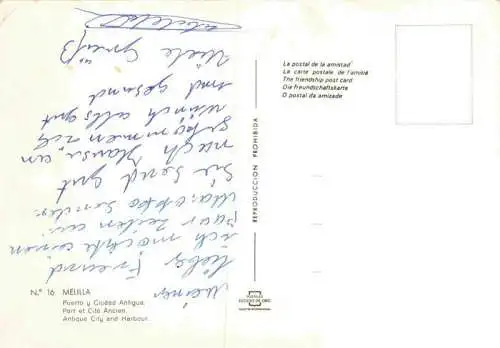 La postal de la amistad
La carte postale de l'amitié
The friendship post card
Die freundschaftskarte
O postal da amizade
REPRODUCCION PROHIBIDA
lieber Freund,
ich möchte einen
paar zeilen
Sie send gut
nach Hause an
gekommen
wünch alles gut
und gesund
Viele Grüß
N.º 16 MELILLA
Puerto y Ciudad Antigua.
Port et Cité Ancien.
Antique City and Harbour.
POSTALES
ESCUDO DE ORO